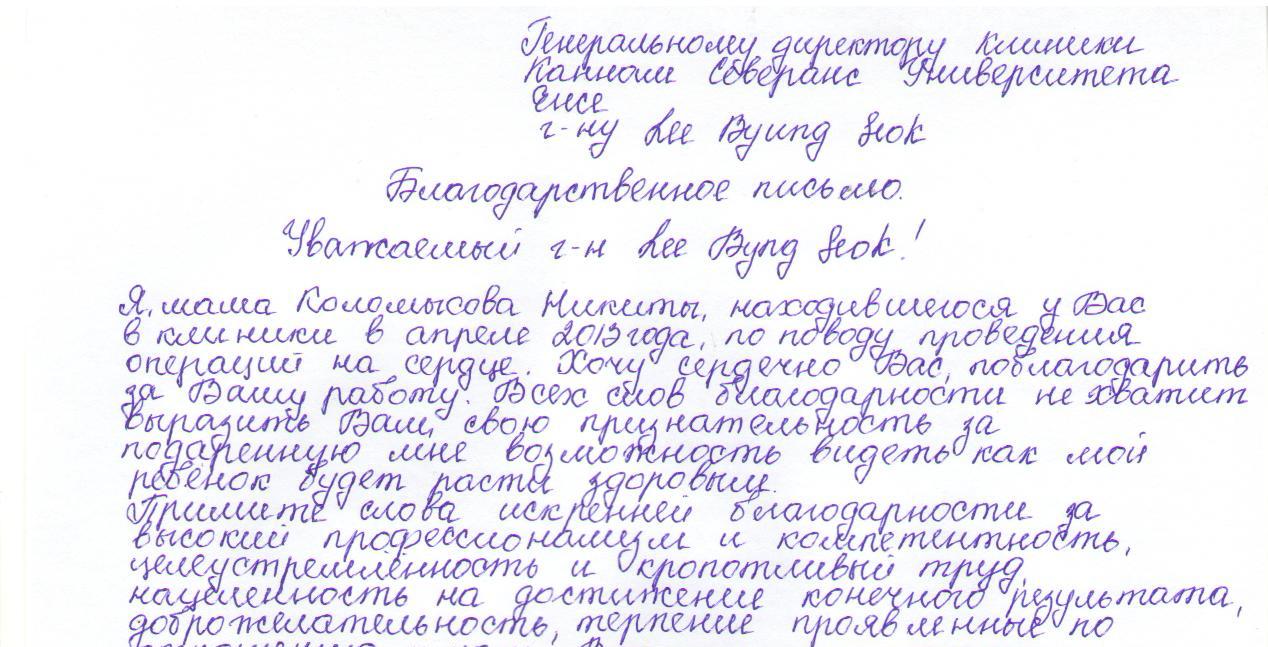 Генеральному директору клиники
Каннам Северанс Университета
Енсе
г-ну Lee Byung Seok
Благодарственное письмо.
Уважаемый г-н Lee Byng Seok!
Я, мама Коломысова Никиты, находившегося у Вас
в клиники в апреле 2013 года, по поводу проведения
операций на сердце. Хочу сердечно Вас, поблагодарить
за Вашу работу. Всех слов благодарности не хватит
выразить Вам, свою признательность за
подаренную мне возможность видеть как мой
ребенок будет расти здоровым.
Примите слова искренней благодарности за
высокий профессионализм и компетентность,
целеустремленность и кропотливый труд,
нацеленность на достижение конечного результата,
доброжелательность, терпение проявленные по